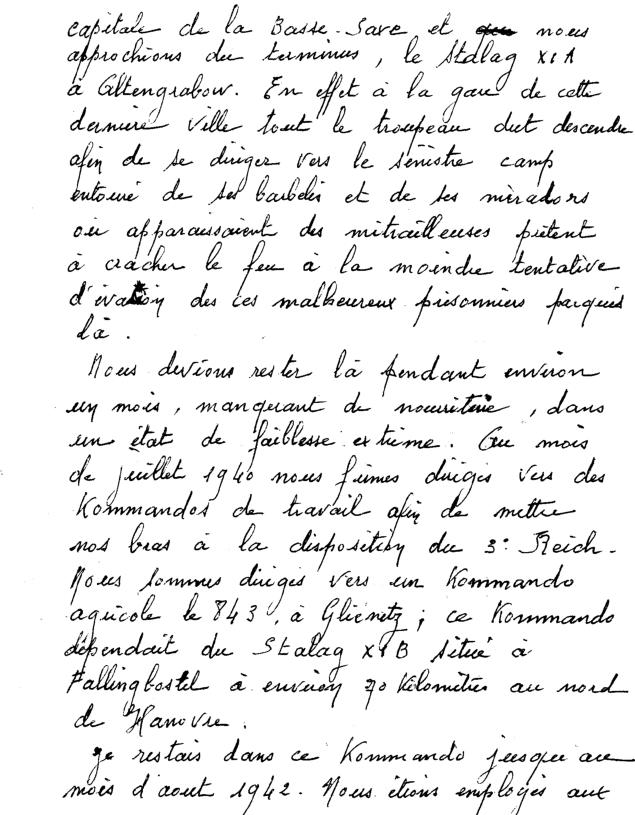 capitale de la Basse-Saxe et que nous
approchions du terminus, le Stalag XI A
à Altengrabow. En effet à la gare de cette
dernière ville tout le troupeau dut descendre
afin de se diriger vers le sinistre camp
entouré de ses barbelés et de ses miradors
où apparaissaient des mitrailleuses prêtent
à cracher le feu à la moindre tentative
d'évasion des ces malheureux prisonniers parqués
là.
Nous devions rester là pendant environ
un mois, manquant de nourriture, dans
un état de faiblesse extrême. Au mois
de juillet 1940 nous fûmes dirigés vers des
Kommandos de travail afin de mettre
nos bras à la disposition du 3e Reich.
Nous sommes dirigés vers un Kommando
agricole le 843, à Glienitz ; ce Kommando
dépendait du Stalag XI B situé à
Fallingbostel à environ 70 Kilomètres au nord
de Hanovre.
Je restais dans ce Kommando jusqu'au
mois d'aout 1942. Nous étions employés aux